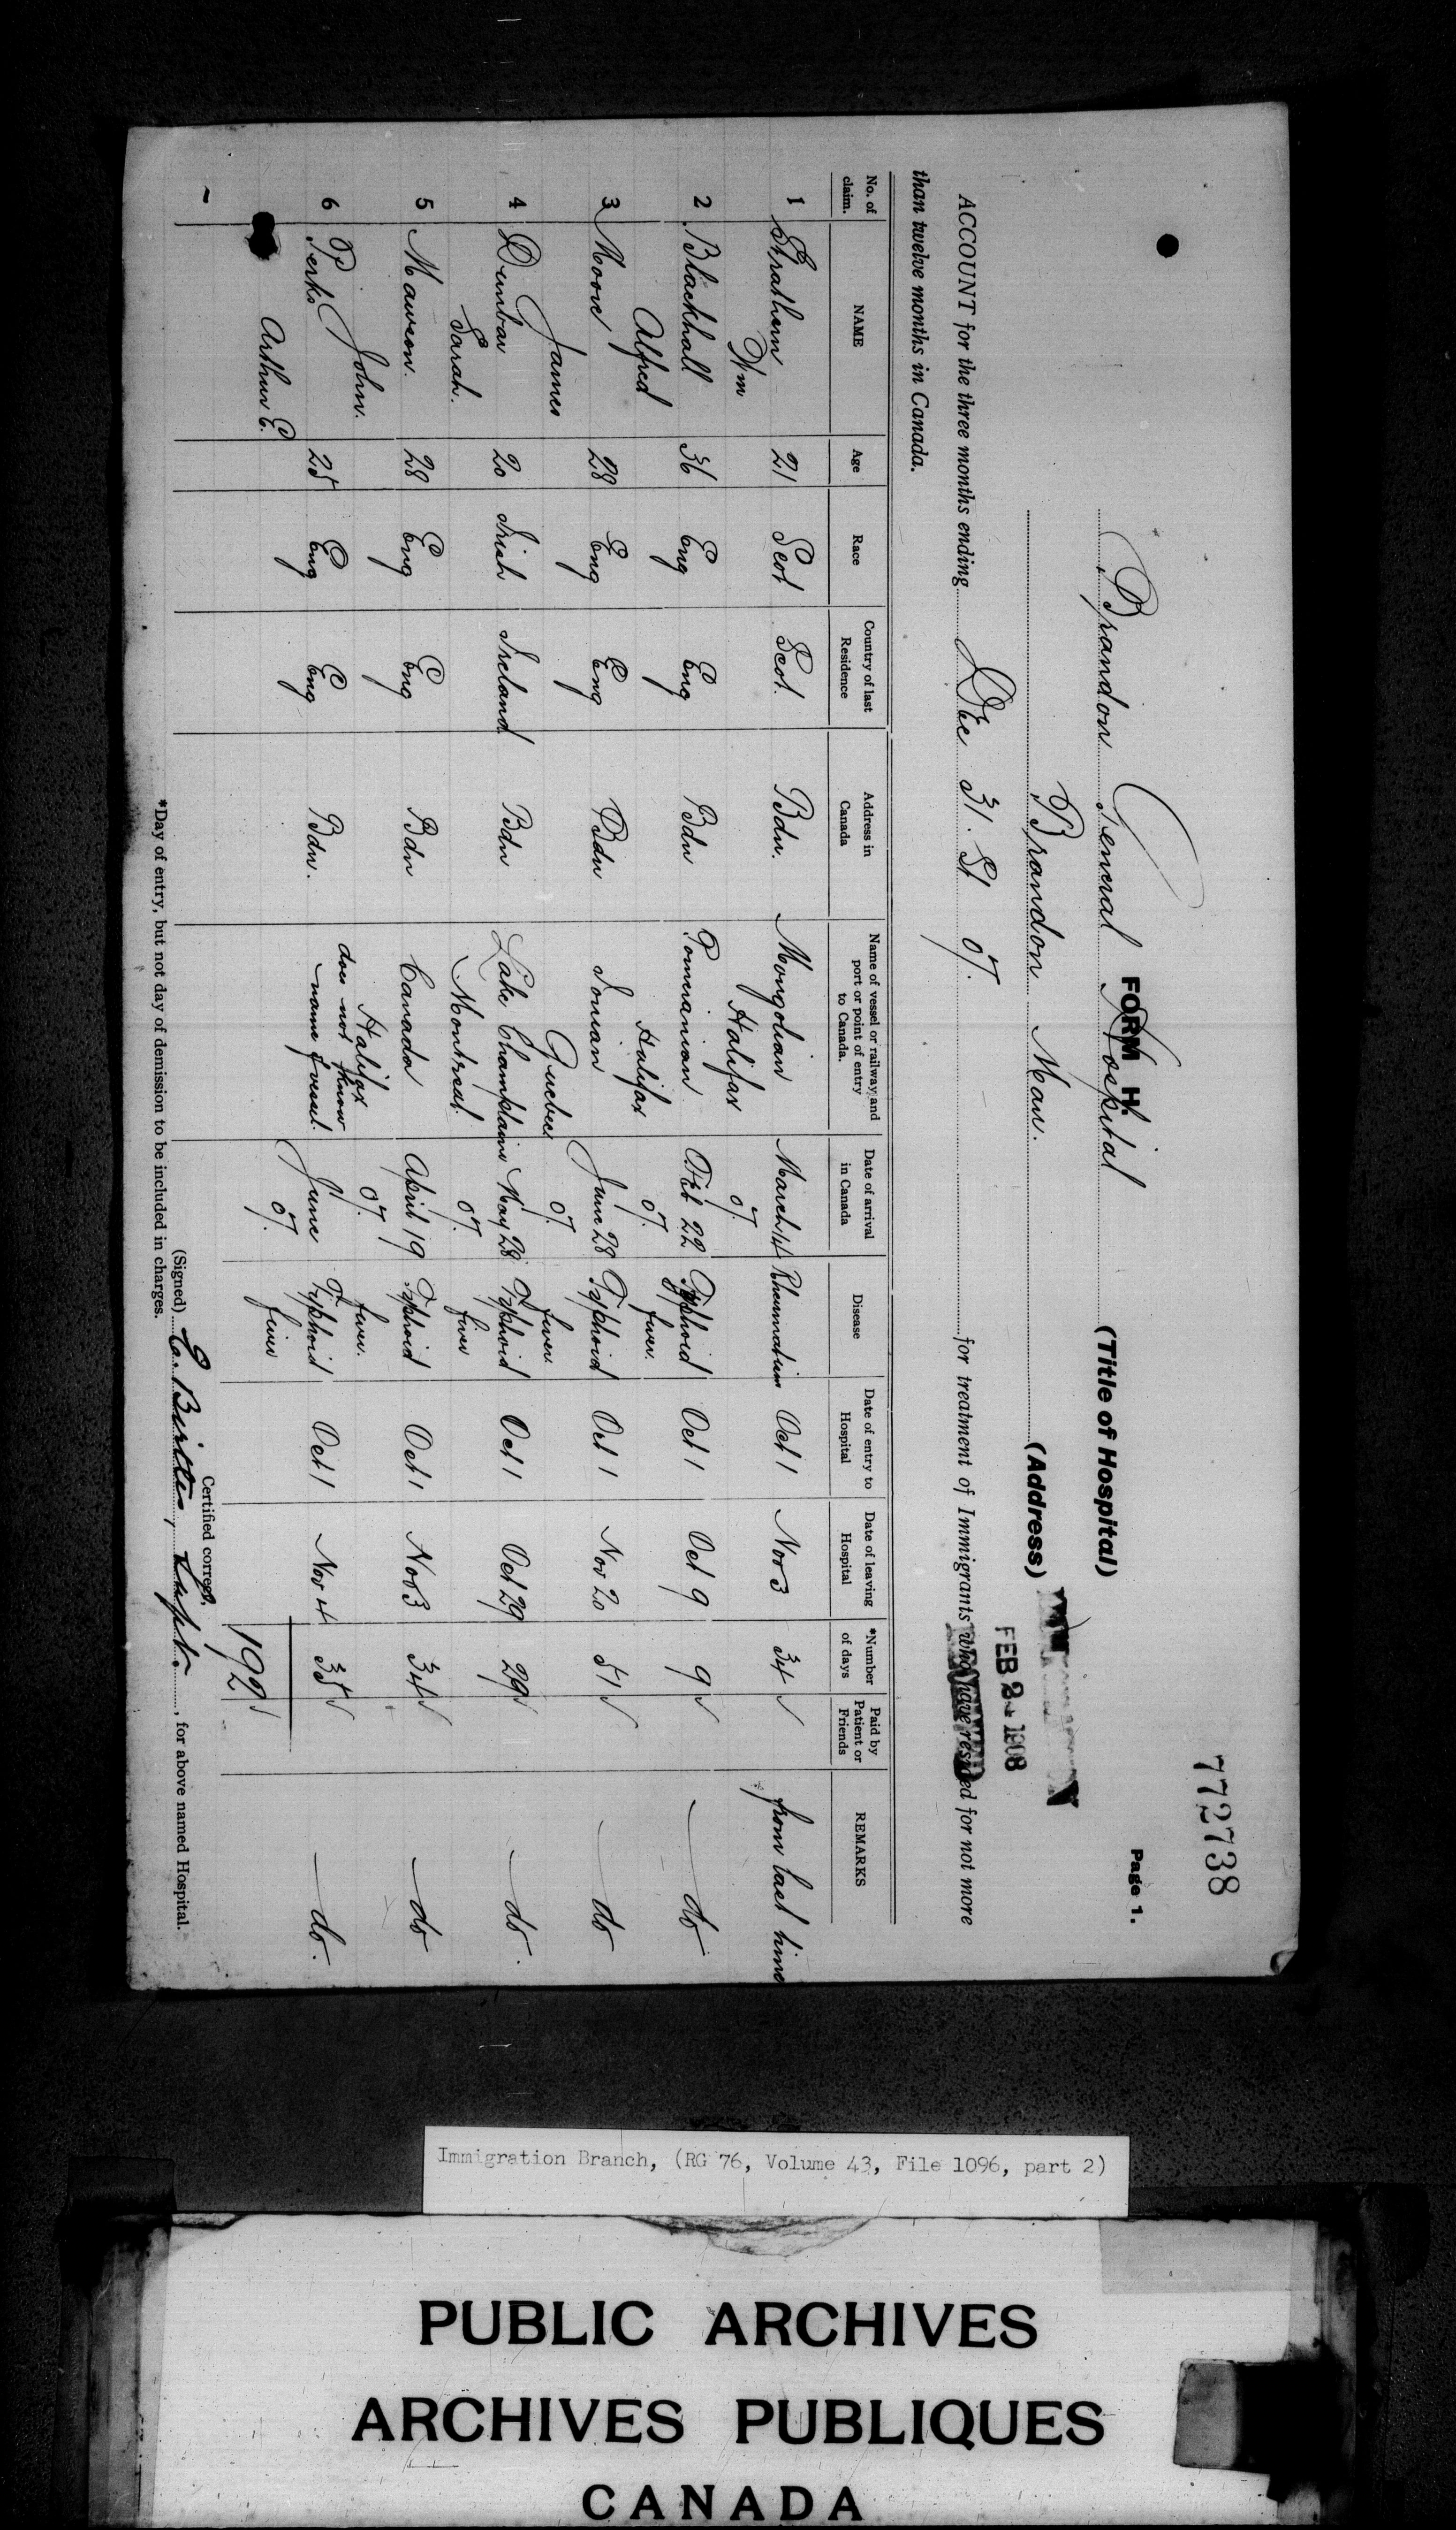 772738
FORM H.
Page 1.
Brandon General Hospital (Title of Hospital)
Brandon Man. (Address)
FEB 24 1908
ACCOUNT for the three months ending Dec 31.St 07. for treatment of Immigrants who have resided for not more
than twelve months in Canada.
No. of claim. NAME Age Race Country of last Residence Address in Canada Name of vessel or railway and port or point of entry to Canada. Date of arrival in Canada Disease Date of entry to Hospital Date of leaving Hospital *Number of days Paid by Patient or Friends REMARKS
1 Strathern 21 Scot Scot. Bdn. Mongolian March 14 Rheumatism Oct 1 Nov 3 34 ✓ from last time
Wm Halifax 07.
2 Blackhall 36 Eng Eng Bdn Pomeranian Feb 22 Typhoid Oct 1 Oct 9 9 ✓ — do
Alfred Halifax 07. fever.
3 Moore 28 Eng Eng Bdn Ionian June 28 Typhoid Oct 1 Nov 20 51 ✓ — do
James Quebec 07. fever.
4 Dunbar 20 Irish Ireland Bdn Lake Champlain May 28 Typhoid Oct 1 Oct 29 29 ✓ — do.
Sarah. Montreal. 07. fever
5 Mawson. 28 Eng Eng Bdn Canada April 19 Typhoid Oct 1 Nov 3 34 ✓ — do
John. Halifax 07. fever.
6 Perks 25 Eng Eng Bdn. does not know name of vessel. June Typhoid Oct 1 Nov 4 35 ✓ — do.
Arthur E. 07. fever
192 ✓
Certified correct,
(Signed) E. Birtles, Supt., for above named Hospital.
*Day of entry, but not day of demission to be included in charges.
Immigration Branch, (RG 76, Volume 43, File 1096, part 2)
PUBLIC ARCHIVES
ARCHIVES PUBLIQUES
CANADA